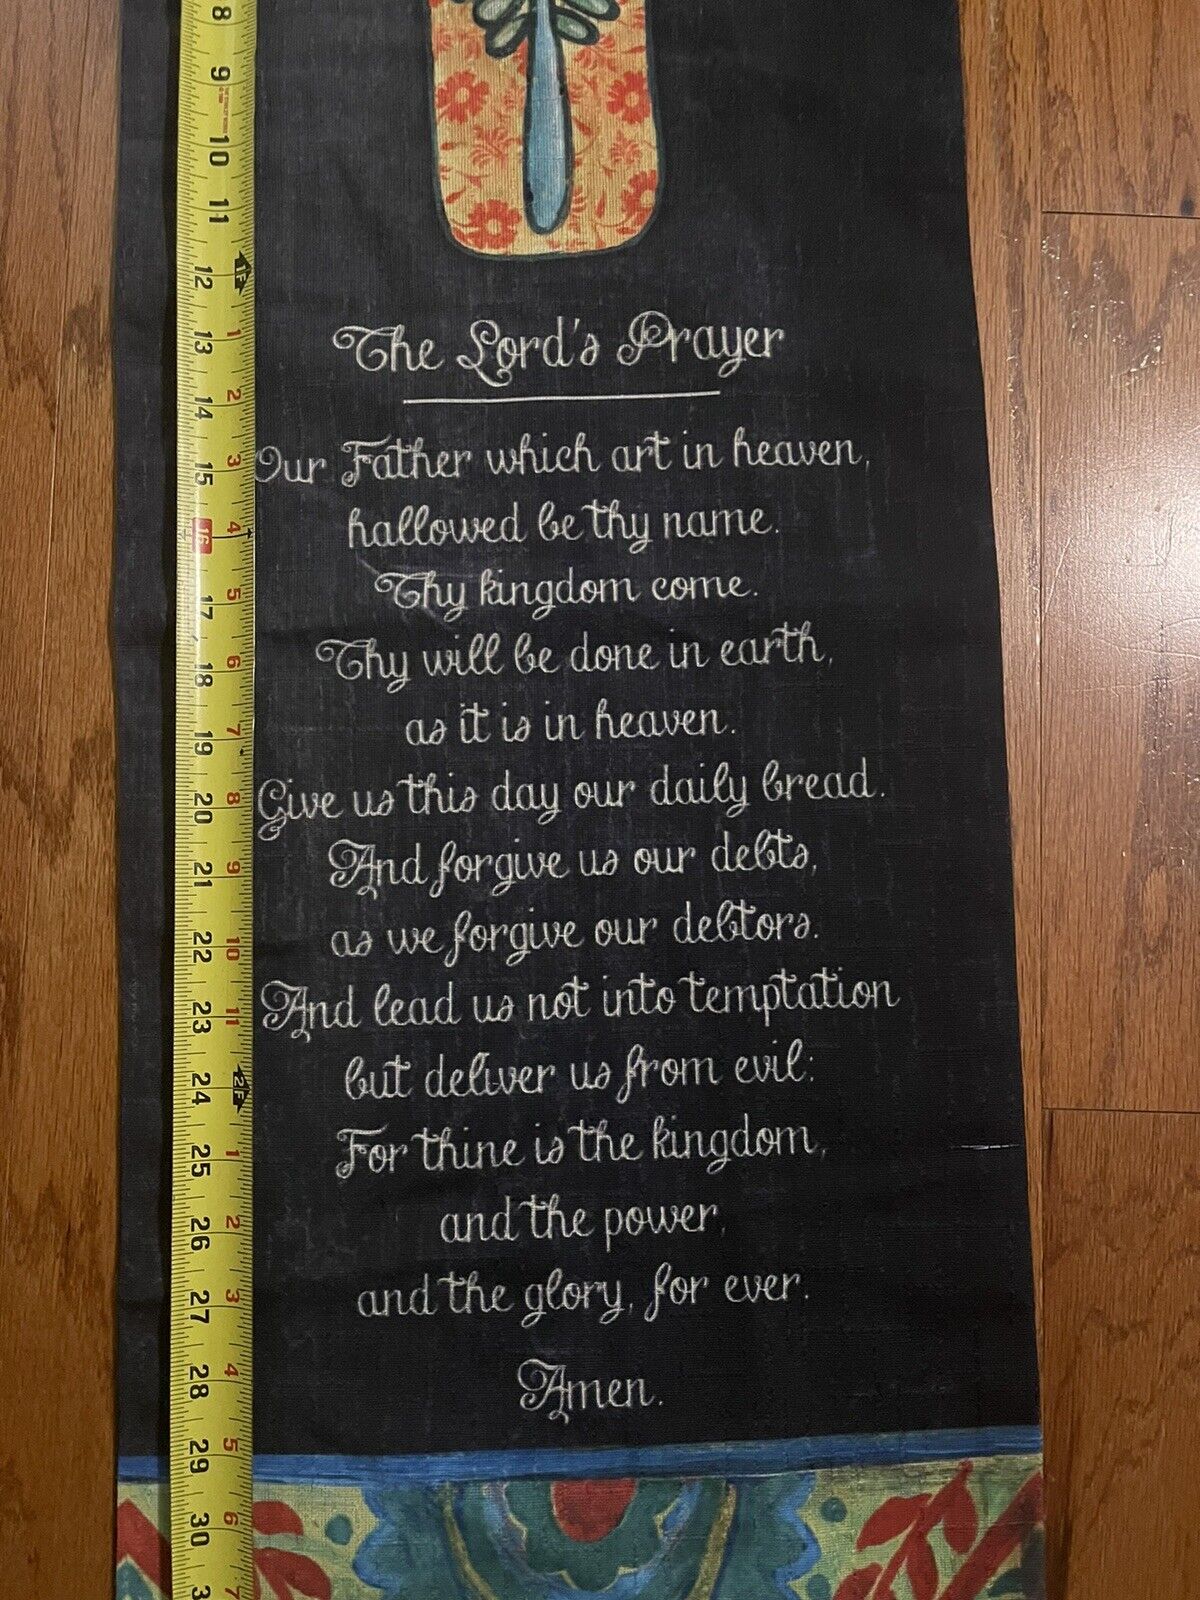 The Lord's Prayer
Our Father which art in heaven,
hallowed be thy name.
Thy kingdom come.
Thy will be done in earth,
as it is in heaven.
Give us this day our daily bread.
And forgive us our debts,
as we forgive our debtors.
And lead us not into temptation
but deliver us from evil:
For thine is the kingdom,
and the power,
and the glory, for ever.
Amen.
8
9
10
11
12 1F
13 1
14 2
15 3
16 4
17 5
18 6
19 7
20 8
21 9
22 10
23 11
24 2F
25 1
26 2
27 3
28 4
29 5
30 6
7